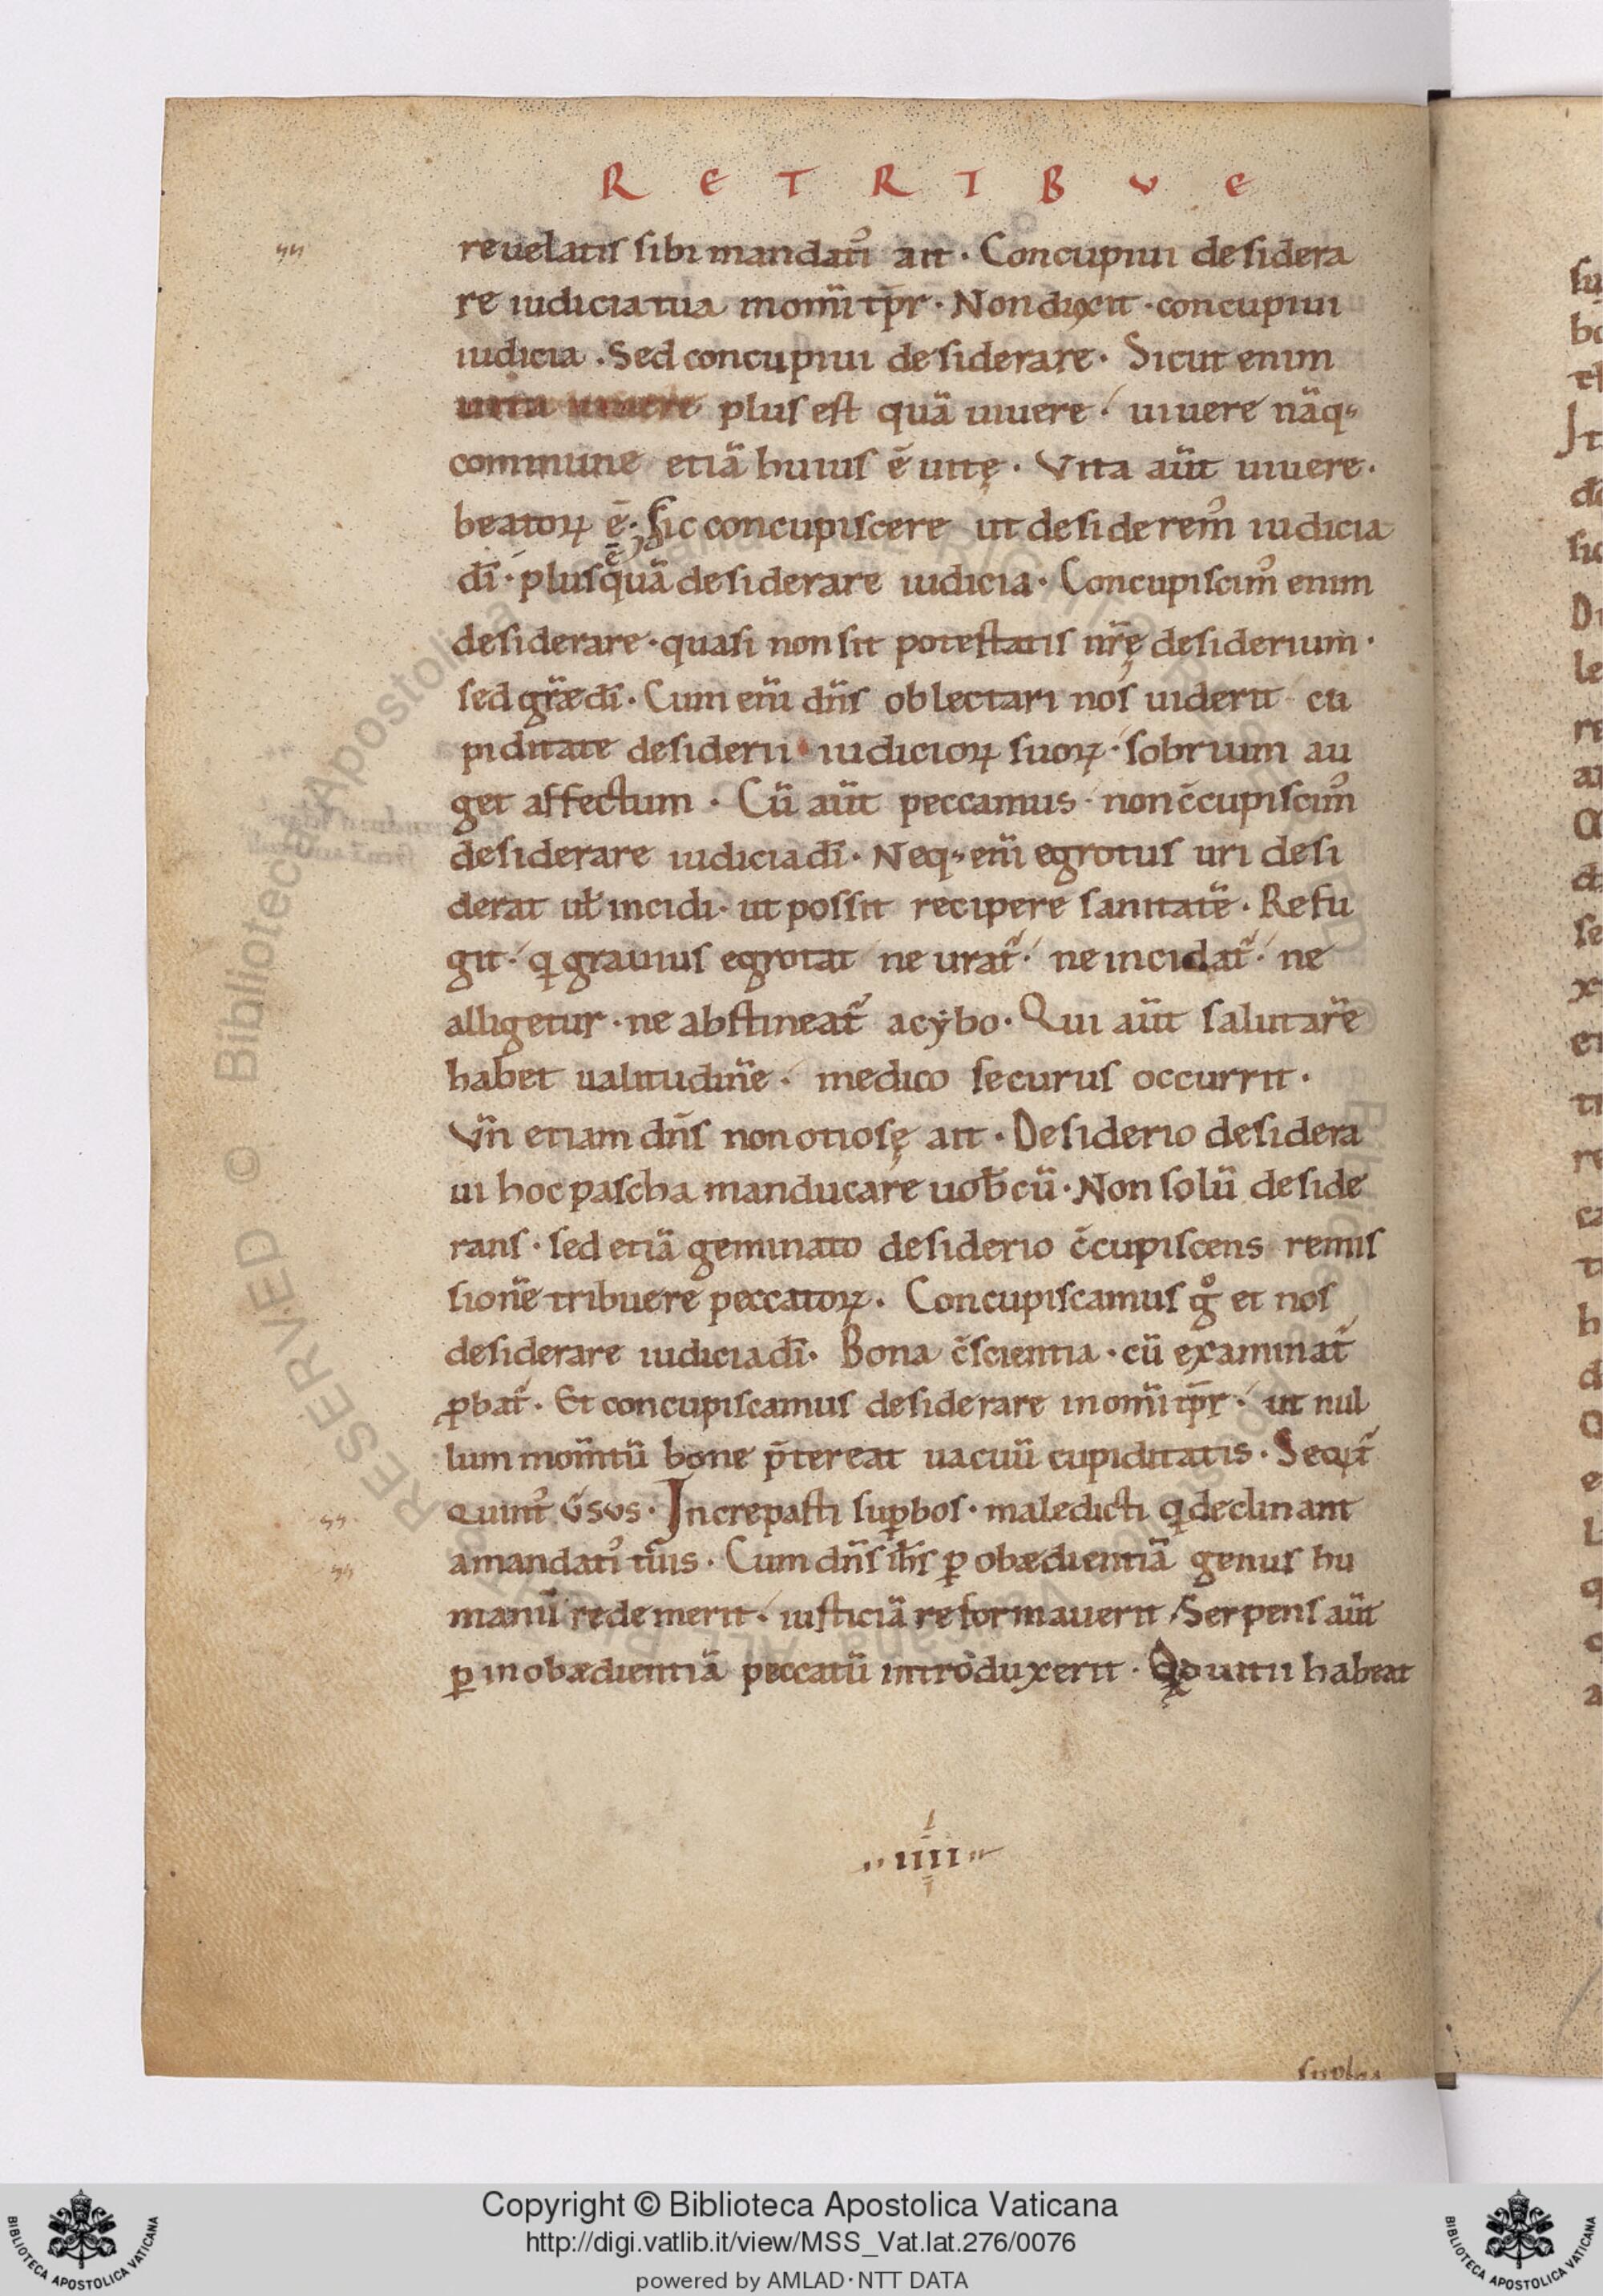 R E T R I B V E
reuelatis sibi mandatꝰ ait · Concupiui desidera
re iudicia tua in om̅i tp̅r · Non dixit · concupiui
iudicia · Sed concupiui desiderare · Sicut enim
uita uiuere plus est quā uiuere · uiuere nāq;
commune etiā huius ē uitę · Vita aūt uiuere ·
beatoꝝ ē · sic concupiscere ut desideremꝰ iudicia
dī · plus quā desiderare iudicia · Concupiscimꝰ enim
ē
desiderare · quasi non sit potestatis nr̄ę desiderium ·
sed gr̄æ dī · Cum eni̅ dn̄s oblectari nos uiderit cu
piditate desiderii iudicioꝝ suoꝝ · sobrium au
get affectum · Cū aūt peccamus · non c̄cupiscimꝰ
desiderare iudicia dī · Neq; eni̅ egrotus uri desi
derat ul̄ incidi · ut possit recipere sanitatē · Refu
git · q grauius egrotat ne urat᷑ · ne incidat᷑ · ne
alligetur · ne abstineat᷑ a cẏbo · Qui aūt salutarē
habet ualitudinē · medico securus occurrit ·
Vn̄ etiam dn̄s non otiosę ait · Desiderio desidera
ui hoc pascha manducare uob̄cū · Non solū deside
rans · sed etiā geminato desiderio c̄cupiscens remis
sionē tribuere peccatoꝝ · Concupiscamus g̊ et nos
desiderare iudicia dī · Bona c̄scientia · cū examinat᷑
ꝓbat᷑ · Et concupiscamus desiderare in om̅i tp̅r · ut nul
lum mom̅tū bone p̄tereat uacuū cupiditatis · Sequit᷑
quintꝰ ūsus · Increpasti suꝑbos · maledicti q declinant
a mandatꝰ tuis · Cum dn̄s ih̄s ꝑ obædientiā genus hu
manū redemerit · iusticiā reformauerit / Serpens aūt
ꝑ inobædientiā peccatū introduxerit · Qd uitii habeat
·· IIII ··